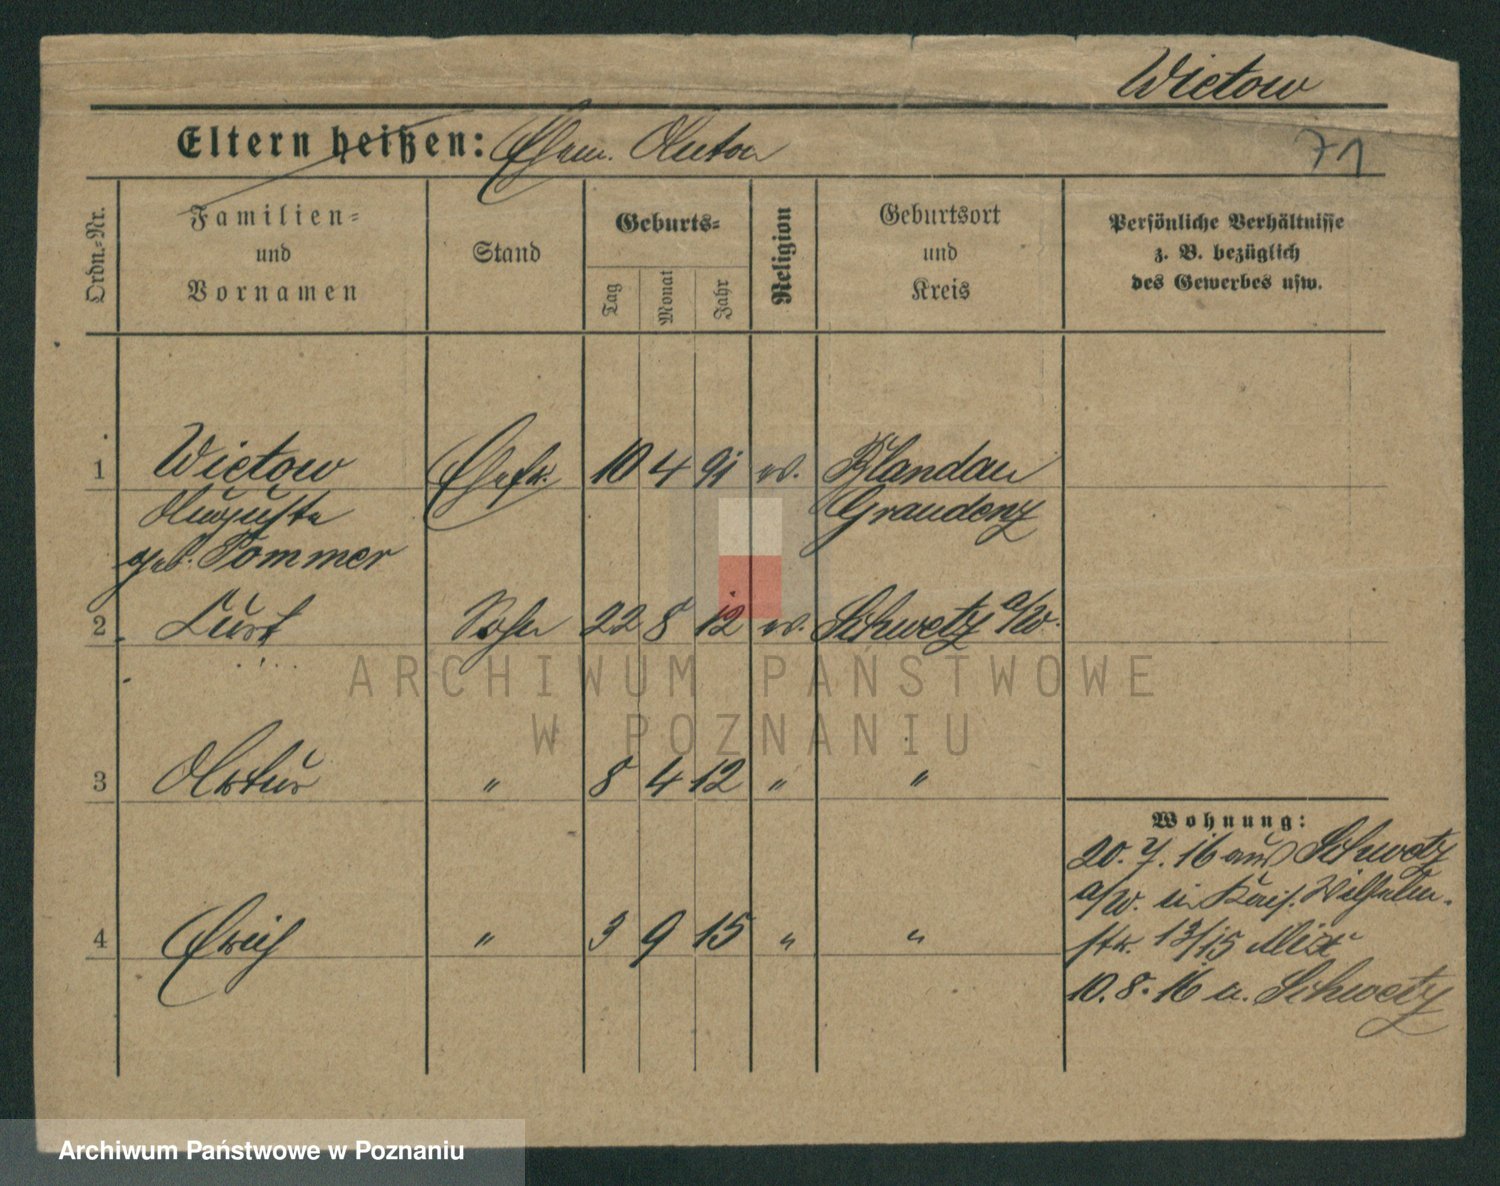 Wietow
Eltern heißen: Ehem. Anton
71
Ordn.-Nr.
Familien-
und
Vornamen
Stand
Geburts-
Tag
Monat
Jahr
Religion
Geburtsort
und
Kreis
Persönliche Verhältnisse
z. B. bezüglich
des Gewerbes usw.
1 Wietow Ehefr. 10 4 91 ev. Blandau
Auguste Graudenz
geb. Pommer
2 Kurt Sohn 22 8 12 ev. Schwetz a/W.
ARCHIWUM PAŃSTWOWE
W POZNANIU
3 Artur " 8 4 12 " "
Wohnung:
20. 7. 16 aus Schwetz
a/W. in Kais. Wilhelm-
str. 13/15 Miet
4 Erich " 3 9 15 " "
10. 8. 16 n. Schwetz
Archiwum Państwowe w Poznaniu